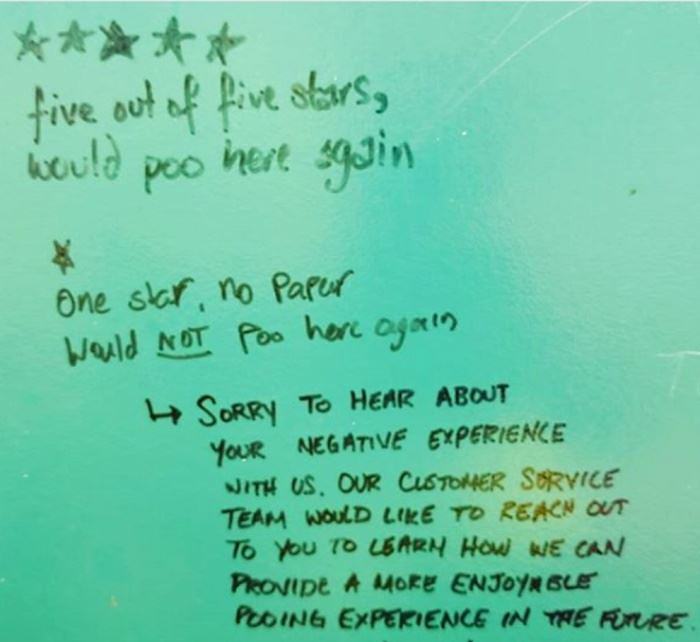 five out of five stars,
would poo here again
One star, no Paper
Would NOT Poo here again
↳ SORRY TO HEAR ABOUT
YOUR NEGATIVE EXPERIENCE
WITH US. OUR CUSTOMER SERVICE
TEAM WOULD LIKE TO REACH OUT
TO YOU TO LEARN HOW WE CAN
PROVIDE A MORE ENJOYABLE
POOING EXPERIENCE IN THE FUTURE.